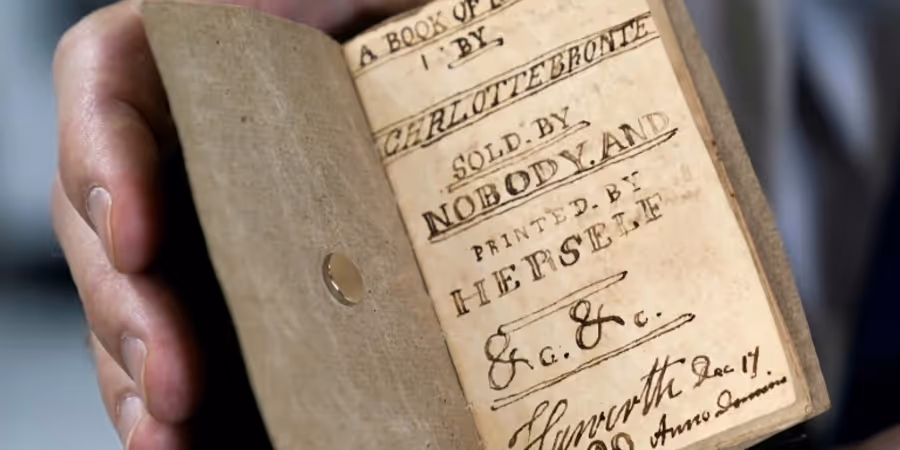 A BOOK OF
BY
CHARLOTTE BRONTE
SOLD. BY
NOBODY. AND
PRINTED. BY
HERSELF
&c. &c.
Haworth Dec 17.
Anno Domino